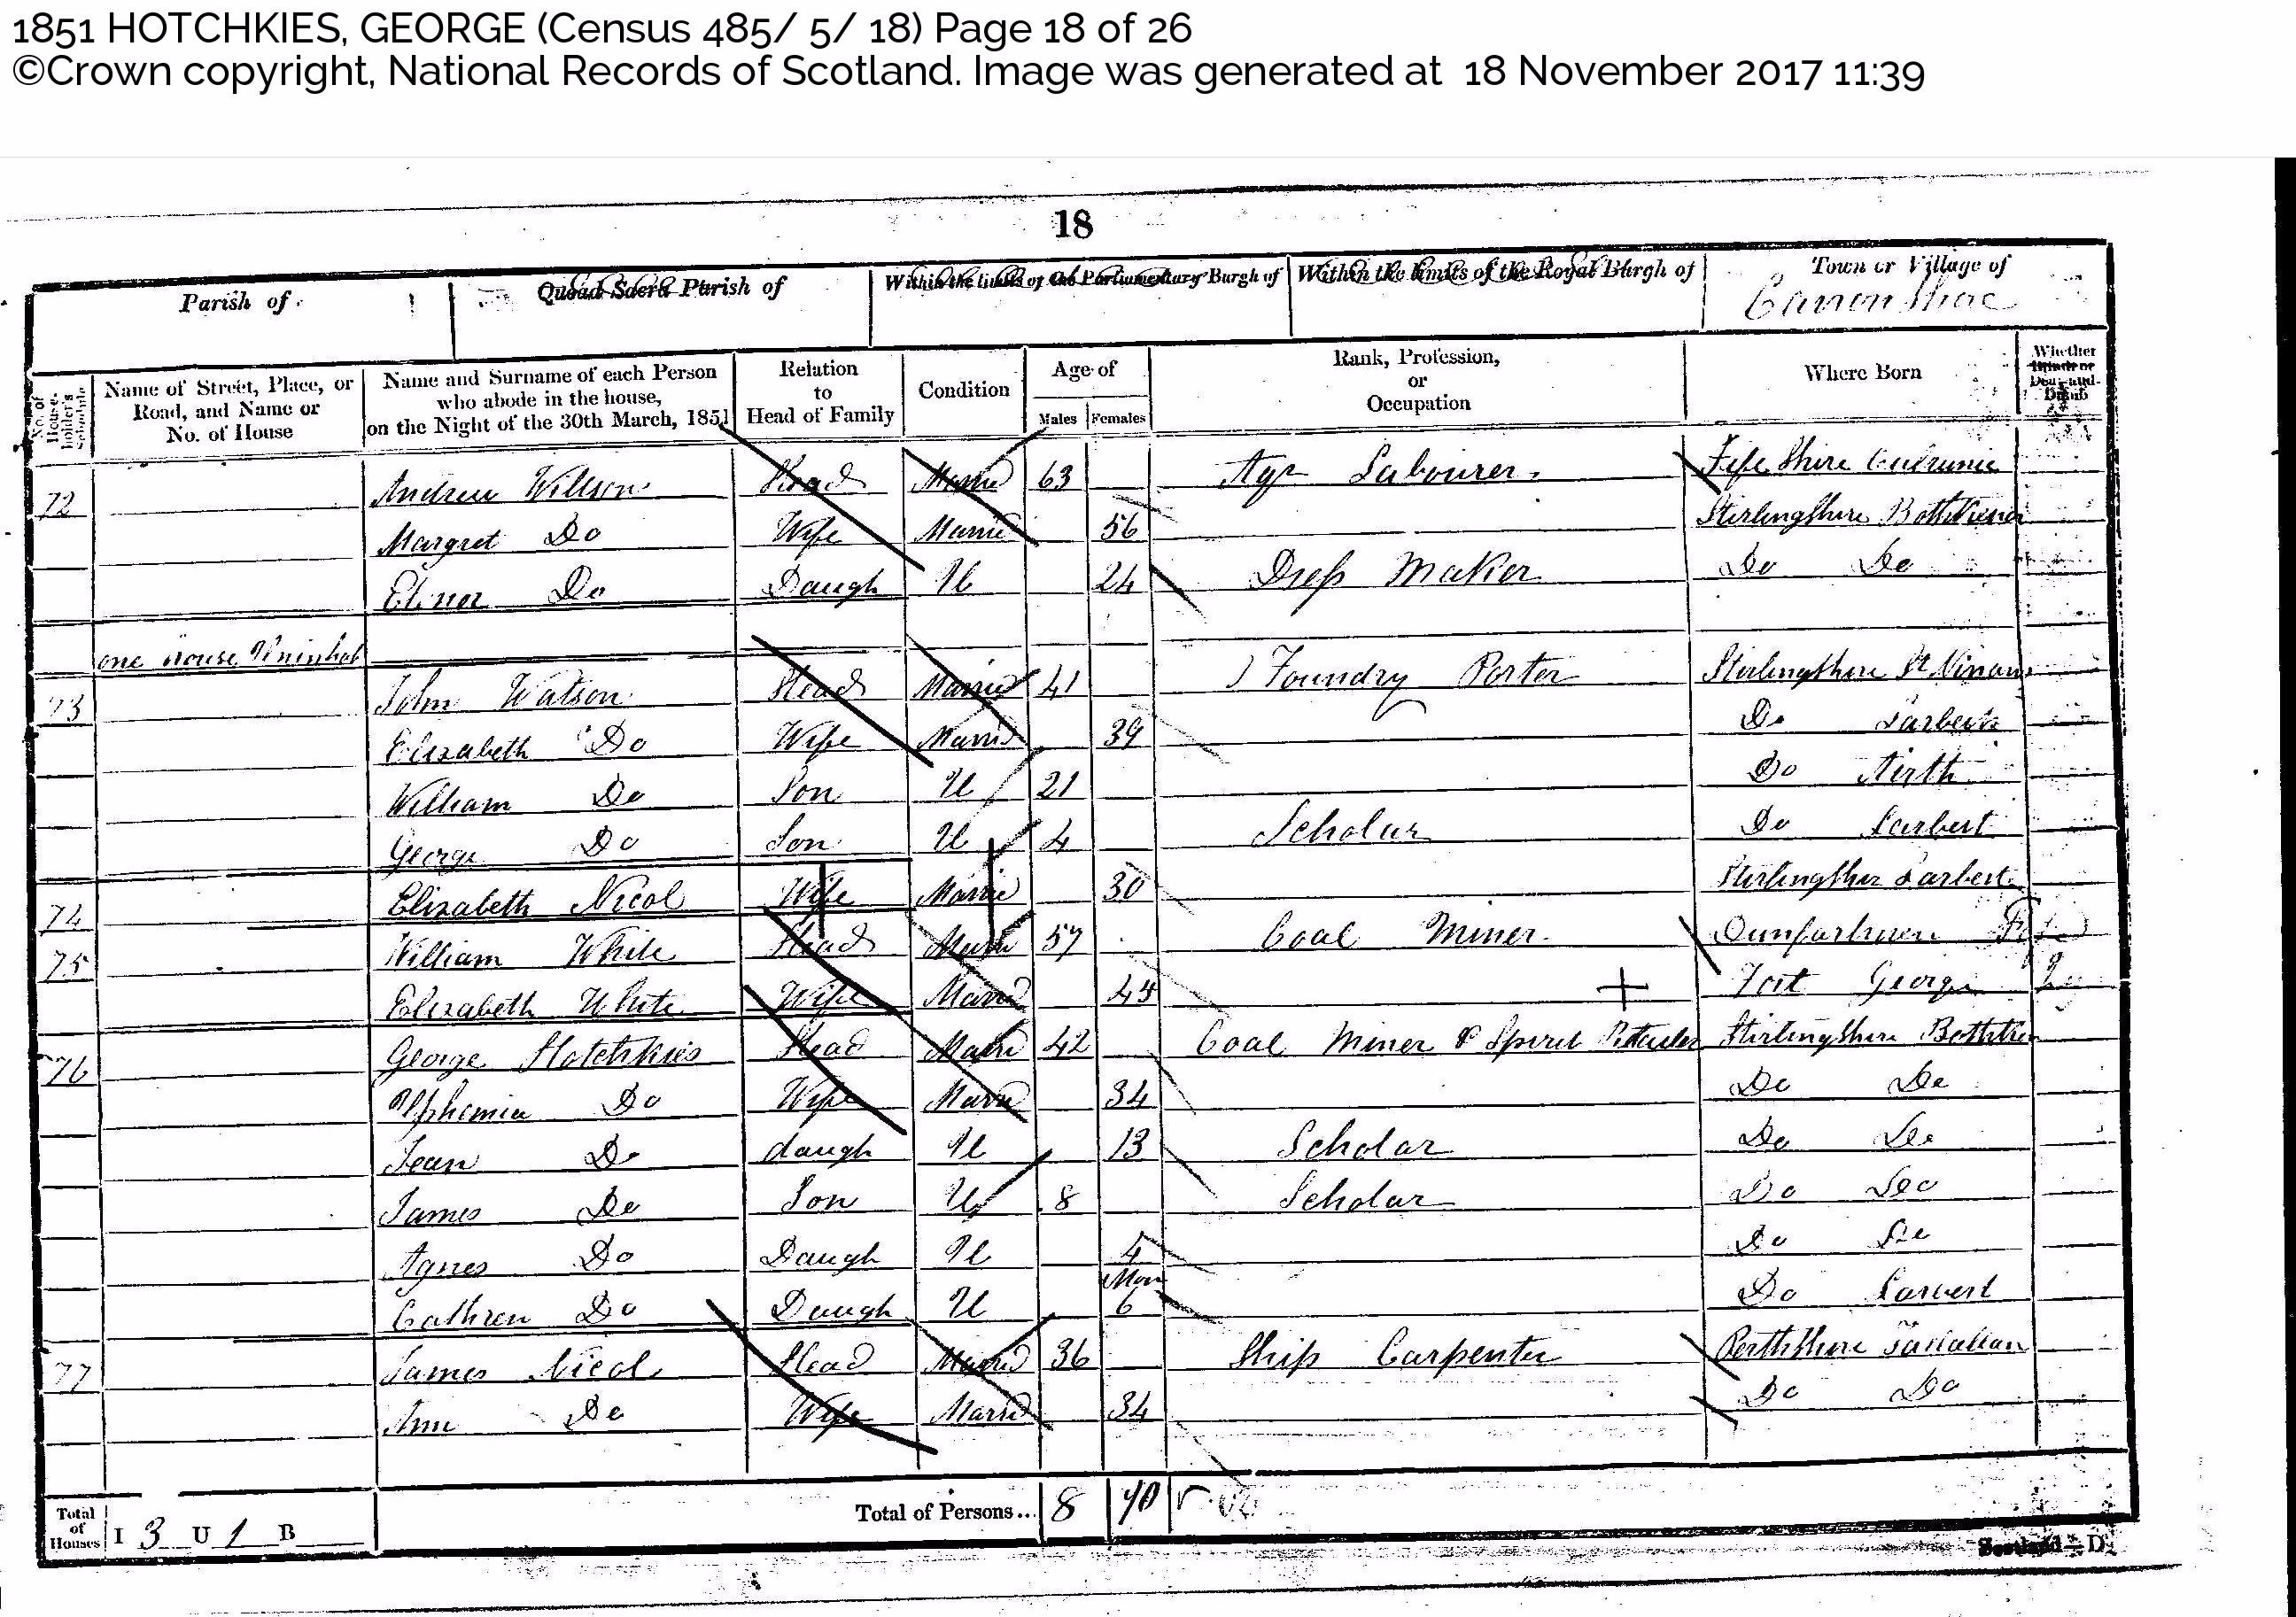 1851 HOTCHKIES, GEORGE (Census 485/ 5/ 18) Page 18 of 26
©Crown copyright, National Records of Scotland. Image was generated at 18 November 2017 11:39
18
Parish of Quoad Sacra Parish of Within the limits of the Parliamentary Burgh of Within the limits of the Royal Burgh of Town or Village of
Carronshore
No. of Householder's Schedule
Name of Street, Place, or Road, and Name or No. of House
Name and Surname of each Person who abode in the house, on the Night of the 30th March, 1851
Relation to Head of Family
Condition
Age of
Males Females
Rank, Profession, or Occupation
Where Born
Whether Blind or Deaf-and-Dumb
72 Andrew Willson Head Married 63 Agr Labourer Fife Shire
Margret Do Wife Marrie 56 Stirlingshire
Elinor Do Daugh U 24 Dress Maker Do Do
one house Uninhab
73 John Watson Head Married 41 1 Foundry Porter Stirlingshire St Ninans
Elizabeth Do Wife Marrid 39 Do Larbert
William Do Son U 21 Do Airth
George Do Son U 4 Scholar Do Larbert
74 Elizabeth Nicol Wife Marrie 30 Larbert
75 William White Head 57 Coal Miner
Elizabeth White Wife Marrid 44 Fort George
76 George Hotchkies Head 42 Coal Miner & Spirit Stirlingshire
Uphemia Do Wife 34 Do Do
Jean Do daugh U 13 Scholar Do Do
James Do Son U 8 Scholar Do Do
Agnes Do Daugh U 4 Do Do
Cathren Do Daugh U Mon 6 Do Larbert
77 James Nicol Head Married 36 Ship Carpenter Perthshire
Ann Do Wife Marrid 34 Do Do
Total of Houses I 3 U 1 B Total of Persons... 8 10
Scotland—D.